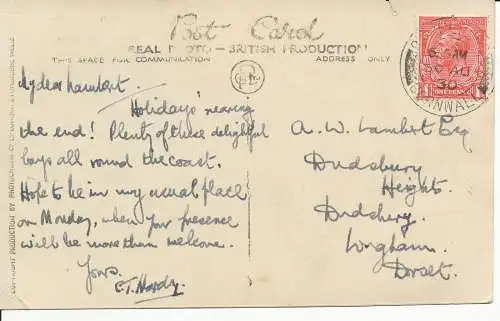 Post Card
REAL PHOTO — BRITISH PRODUCTION
THIS SPACE FOR COMMUNICATION
ADDRESS ONLY
My dear Lambert,
Holidays nearing
the end! Plenty of these delightful
bays all round the coast.
Hope to be in my usual place
on Monday, when your presence
will be more than welcome.
Yours.
E.T. Hardy.
A. W. Lambert Esq
Dudsbury
Heights.
Dudsbury.
Longham.
Dorset.
ONE PENNY
AM
AU
30
CORNWALL
COPYRIGHT PRODUCTION BY